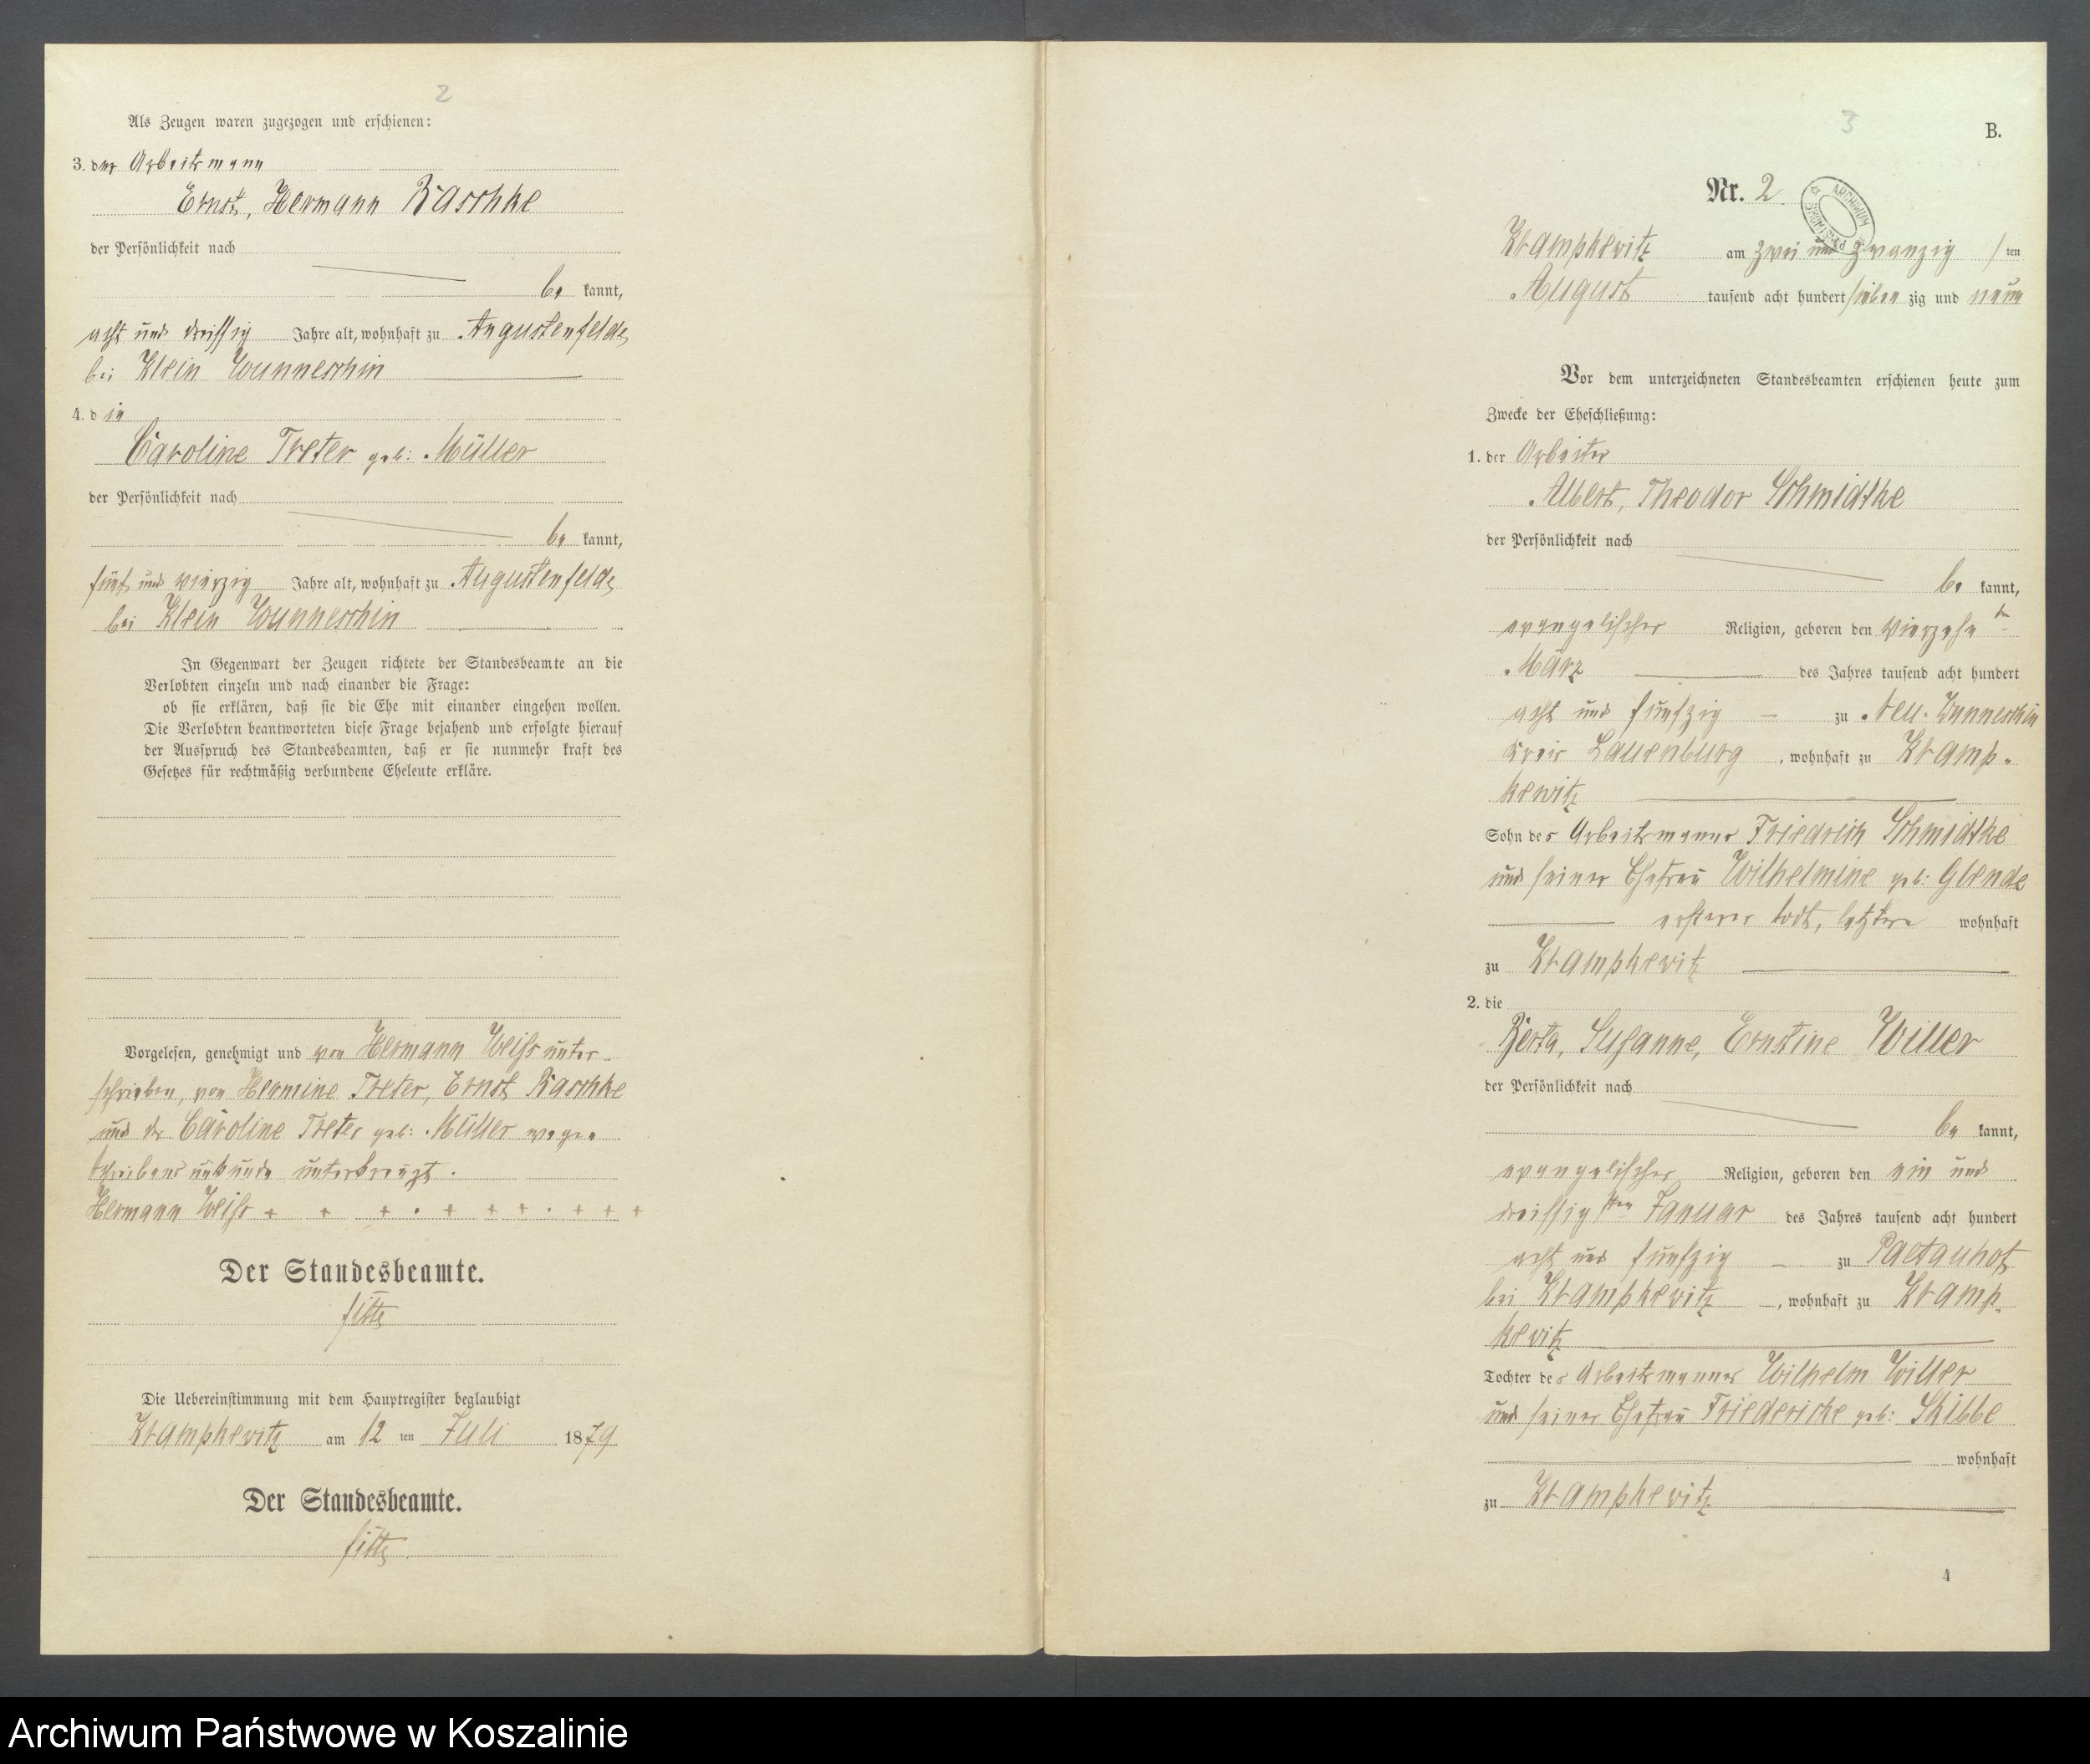 2
Als Zeugen waren zugezogen und erschienen:
3. der Arbeitsmann
Ernst, Hermann Raschke
der Persönlichkeit nach
be kannt,
acht und dreissig Jahre alt, wohnhaft zu Augustenfelde
bei Klein Wunneschin
4. die
Caroline Treter geb: Müller
der Persönlichkeit nach
be kannt,
fünf und vierzig Jahre alt, wohnhaft zu Augustenfelde
bei Klein Wunneschin
In Gegenwart der Zeugen richtete der Standesbeamte an die
Verlobten einzeln und nach einander die Frage:
ob sie erklären, daß sie die Ehe mit einander eingehen wollen.
Die Verlobten beantworteten diese Frage bejahend und erfolgte hierauf
der Ausspruch des Standesbeamten, daß er sie nunmehr kraft des
Gesetzes für rechtmäßig verbundene Eheleute erkläre.
Vorgelesen, genehmigt und von Hermann Weiss unter-
schrieben, von Hermine Treter, Ernst Raschke
und der Caroline Treter geb: Müller wegen
Schreibens unkunde unterkreuzt.
Hermann Weiss + + + . + + + . + + +
Der Standesbeamte.
Die Uebereinstimmung mit dem Hauptregister beglaubigt
Krampkewitz am 12 ten Juli 1879
Der Standesbeamte.
3
B.
Nr. 2
ARCHIWUM
Krampkewitz am zwei und zwanzig ten
August tausend acht hundert sieben zig und neun
Vor dem unterzeichneten Standesbeamten erschienen heute zum
Zwecke der Eheschließung:
1. der Arbeiter
Albert, Theodor Schmidtke
der Persönlichkeit nach
be kannt,
evangelischer Religion, geboren den vierzehn ten
März des Jahres tausend acht hundert
acht und fünfzig zu Neu-Wunneschin
Kreis Lauenburg, wohnhaft zu Kramp-
kewitz
Sohn des Arbeitsmannes Friedrich Schmidtke
und seiner Ehefrau Wilhelmine geb: Glende
ersterer todt, letztere wohnhaft
zu Krampkewitz
2. die
Berta, Susanne, Ernstine Willer
der Persönlichkeit nach
be kannt,
evangelischer Religion, geboren den ein und
dreissigsten Januar des Jahres tausend acht hundert
acht und fünfzig zu
bei Krampkewitz, wohnhaft zu Kramp-
kewitz
Tochter des Arbeitsmannes Wilhelm Willer
und seiner Ehefrau Friedericke geb: Skibbe
wohnhaft
zu Krampkewitz
4
Archiwum Państwowe w Koszalinie